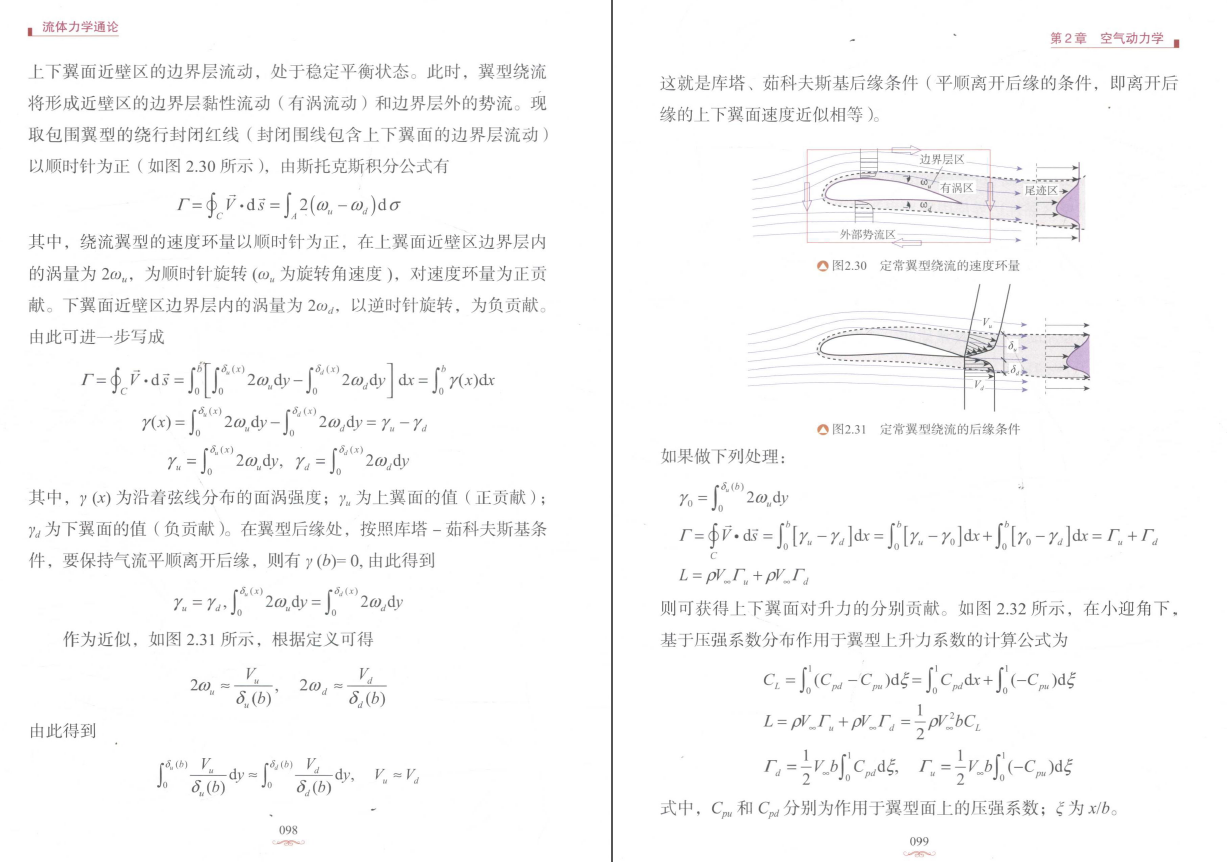 流体力学通论
上下翼面近壁区的边界层流动，处于稳定平衡状态。此时，翼型绕流
将形成近壁区的边界层黏性流动（有涡流动）和边界层外的势流。现
取包围翼型的绕行封闭红线（封闭围线包含上下翼面的边界层流动）
以顺时针为正（如图 2.30 所示），由斯托克斯积分公式有
Γ=∮_C V⃗·ds⃗=∫_A 2(ω_u-ω_d)dσ
其中，绕流翼型的速度环量以顺时针为正，在上翼面近壁区边界层内
的涡量为 2ω_u，为顺时针旋转 (ω_u 为旋转角速度 )，对速度环量为正贡
献。下翼面近壁区边界层内的涡量为 2ω_d，以逆时针旋转，为负贡献。
由此可进一步写成
Γ=∮_C V⃗·ds⃗=∫_0^b[∫_0^{δ_u(x)} 2ω_u dy-∫_0^{δ_d(x)} 2ω_d dy]dx=∫_0^b γ(x)dx
γ(x)=∫_0^{δ_u(x)} 2ω_u dy-∫_0^{δ_d(x)} 2ω_d dy=γ_u-γ_d
γ_u=∫_0^{δ_u(x)} 2ω_u dy, γ_d=∫_0^{δ_d(x)} 2ω_d dy
其中，γ (x) 为沿着弦线分布的面涡强度；γ_u 为上翼面的值（正贡献）；
γ_d 为下翼面的值（负贡献）。在翼型后缘处，按照库塔－茹科夫斯基条
件，要保持气流平顺离开后缘，则有 γ (b)= 0, 由此得到
γ_u=γ_d, ∫_0^{δ_u(x)} 2ω_u dy=∫_0^{δ_d(x)} 2ω_d dy
作为近似，如图 2.31 所示，根据定义可得
2ω_u≈V_u/δ_u(b), 2ω_d≈V_d/δ_d(b)
由此得到
∫_0^{δ_u(b)} V_u/δ_u(b) dy≈∫_0^{δ_d(b)} V_d/δ_d(b) dy, V_u≈V_d
098
第 2 章 空气动力学
这就是库塔、茹科夫斯基后缘条件（平顺离开后缘的条件，即离开后
缘的上下翼面速度近似相等）。
边界层区
ω_u
有涡区
尾迹区
ω_d
外部势流区
图2.30 定常翼型绕流的速度环量
V_u
δ_u
δ_d
V_d
图2.31 定常翼型绕流的后缘条件
如果做下列处理：
γ_0=∫_0^{δ_u(b)} 2ω_u dy
Γ=∮_C V⃗·ds⃗=∫_0^b[γ_u-γ_d]dx=∫_0^b[γ_u-γ_0]dx+∫_0^b[γ_0-γ_d]dx=Γ_u+Γ_d
L=ρV_∞Γ_u+ρV_∞Γ_d
则可获得上下翼面对升力的分别贡献。如图 2.32 所示，在小迎角下，
基于压强系数分布作用于翼型上升力系数的计算公式为
C_L=∫_0^1(C_pd-C_pu)dξ=∫_0^1 C_pd dx+∫_0^1(-C_pu)dξ
L=ρV_∞Γ_u+ρV_∞Γ_d=1/2 ρV_∞^2 bC_L
Γ_d=1/2 V_∞b∫_0^1 C_pd dξ, Γ_u=1/2 V_∞b∫_0^1(-C_pu)dξ
式中，C_pu 和 C_pd 分别为作用于翼型面上的压强系数；ξ 为 x/b。
099